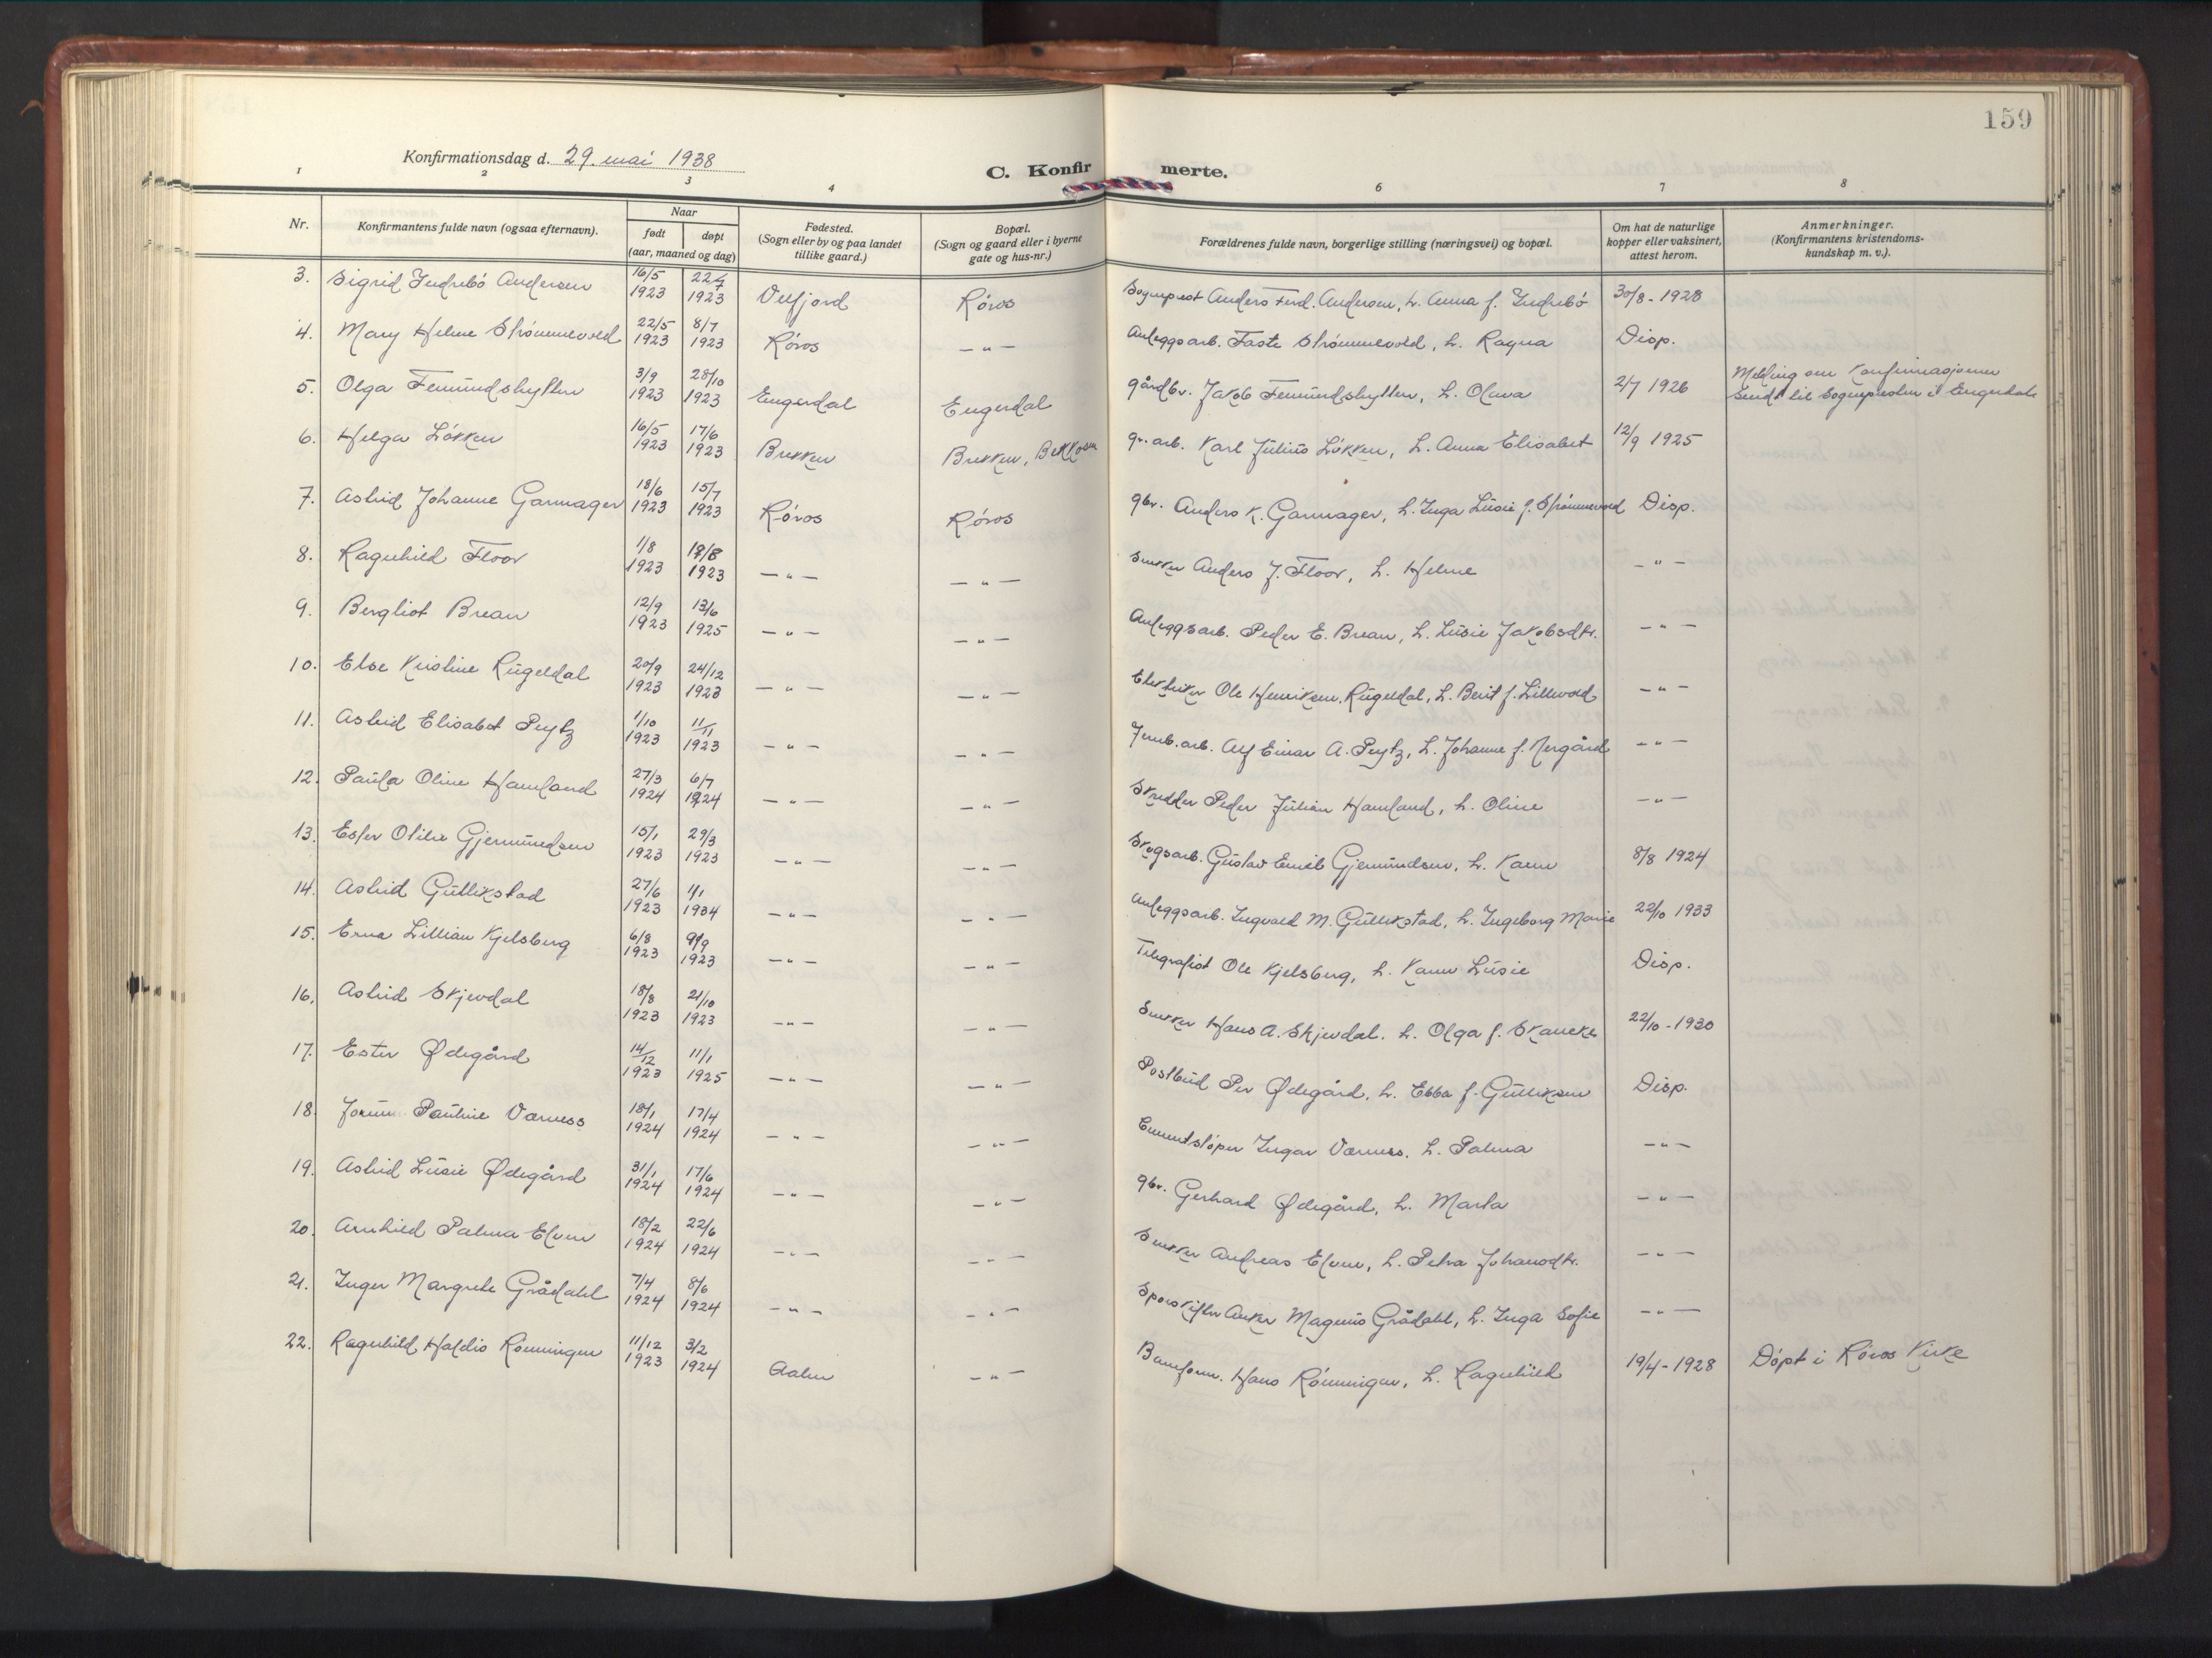 159
Konfirmationsdag d. 29. mai 1938
C. Konfirmerte.
1 2 3 4 6 7 8
Nr.
Konfirmantens fulde navn (ogsaa efternavn).
Naar
født
døpt
(aar, maaned og dag)
Fødested.
(Sogn eller by og paa landet
tillike gaard.)
Bopæl.
(Sogn og gaard eller i byerne
gate og hus-nr.)
Forældrenes fulde navn, borgerlige stilling (næringsvei) og bopæl.
Om hat de naturlige
kopper eller vaksinert,
attest herom.
Anmerkninger.
(Konfirmantens kristendoms-
kundskap m. v.).
3. Sigrid Indrebö Andersen 16/5 1923 22/7 1923 Velfjord Röros Sogneprest Anders Ferd. Andersen, h. Anna f. Indrebö 30/8 - 1928
4. Mary Helene Strömmevold 22/5 1923 8/7 1923 Röros — " — Anleggsarb. Faste Strömmevold, h. Ragna Disp.
5. Olga Femundshytten 3/9 1923 28/10 1923 Engerdal Engerdal gårdbr. Jakob Femundshytten, h. Olava 2/7 1926 Melding om konfirmasjonen
sendt til Sognepresten i Engerdal
6. Helga Lökken 16/5 1923 17/6 1923 Brekken Brekken, Bekkosen gr. arb. Karl Julius Lökken, h. Anna Elisabet 12/9 1925
7. Astrid Johanne Garmager 18/6 1923 15/7 1923 Röros Röros gbr. Anders K. Garmager, h. Inga Lusie f. Strömmevold Disp.
8. Ragnhild Floor 1/8 1923 19/8 1923 — " — — " — Snekker Anders J. Floor, h. Helene — " —
9. Bergliot Brean 12/9 1923 13/6 1925 — " — — " — Anleggsarb. Peder E. Brean, h. Lusie Jakobsdtr. — " —
10. Else Kristine Rugeldal 20/9 1923 24/12 1923 — " — — " — Elektriker Ole Henriksen Rugeldal, h. Berit f. Lillevold — " —
11. Astrid Elisabet Peytz 1/10 1923 11/11 1923 — " — — " — Jernb. arb. Alf Einar A. Peytz, h. Johanne f. Nergård — " —
12. Paula Oline Hamland 27/3 1924 6/7 1924 — " — — " — Skredder Peder Julian Hamland, h. Oline — " —
13. Ester Otilie Gjermundsen 15/1 1923 29/3 1923 — " — — " — Skogsarb. Gustav Emil Gjermundsen, h. Karen 8/8 1924
14. Astrid Gullikstad 27/6 1923 1/1 1934 — " — — " — Anleggsarb. Ingvald M. Gullikstad, h. Ingeborg Marie 22/10 1933
15. Erna Lillian Kjelsberg 6/8 1923 9/9 1923 — " — — " — Telegrafist Ole Kjelsberg, h. Karen Lusie Disp.
16. Astrid Skjevdal 18/8 1923 21/10 1923 — " — — " — Snekker Hans A. Skjevdal. h. Olga f. Skancke 22/10 - 1930
17. Ester Ødegård 14/12 1923 11/1 1925 — " — — " — Postbud Per Ødegård, h. Ebba f. Gulliksen Disp.
18. Jorunn Pauline Værness 18/1 1924 17/4 1924 — " — — " — Cementstöper Ingar Værness. h. Palma — " —
19. Astrid Lusie Ødegård 31/1 1924 17/6 1924 — " — — " — gbr. Gerhard Ødegård, h. Marta — " —
20. Arnhild Palma Elven 18/2 1924 22/6 1924 — " — — " — Snekker Andreas Elven, h. Petra Johansdtr. — " —
21. Inger Margrete Grådahl 7/4 1924 8/6 1924 — " — — " — Sporskifter Anker Magnus Grådahl, h. Inga Sofie — " —
22. Ragnhild Haldis Rönningen 11/12 1923 3/2 1924 Aalen — " — Baneform. Hans Rönningen, h. Ragnhild 19/4 - 1928 Döpt i Röros Kirke